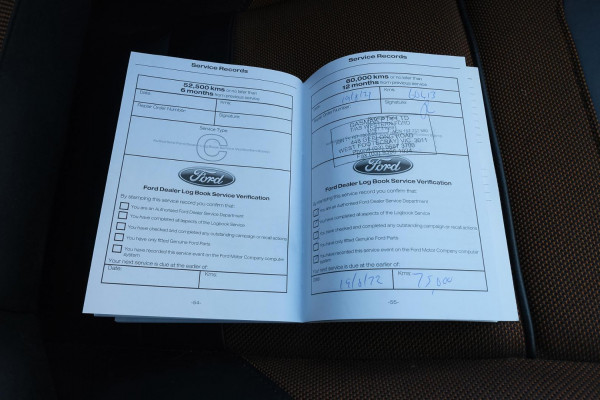 Service Records
52,500 kms or no later than
6 months from previous service
Date:
Kms:
Repair Order Number:
Signature:
Service Type
C
Ford
Ford Dealer Log Book Service Verification
By stamping this service record you confirm that:
You are an Authorised Ford Dealer Service Department
You have completed all aspects of the Logbook Service
You have checked and completed any outstanding campaign or recall actions
You have only fitted Genuine Ford Parts
You have recorded this service event on the Ford Motor Company computer
system
Your next service is due at the earlier of:
Date:
Kms:
-54-
Service Records
60,000 kms or no later than
12 months from previous service
Kms:
Signature:
WEST FOOTSCRAY VIC. 3011
Ford
Ford Dealer Log Book Service Verification
By stamping this service record you confirm that:
You are an Authorised Ford Dealer Service Department
You have completed all aspects of the Logbook Service
You have checked and completed any outstanding campaign or recall actions
You have only fitted Genuine Ford Parts
You have recorded this service event on the Ford Motor Company computer
system
Your next service is due at the earlier of:
Date:
Kms:
75,000
-55-